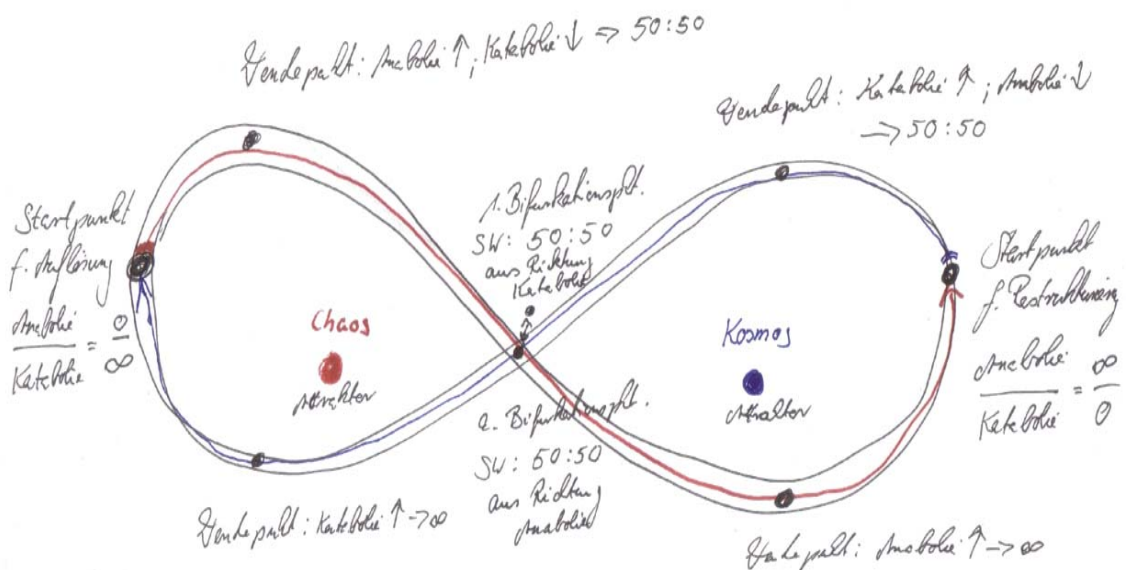 Wendepunkt: Anabolie ↑, Katabolie ↓ => 50:50
Wendepunkt: Katabolie ↑; Anabolie ↓
=> 50:50
Startpunkt
f. Auflösung
Anabolie
Katabolie
= 0
∞
1. Bifurkationspkt.
SW: 50:50
aus Richtung
Katabolie
Chaos
Attraktor
Kosmos
Attraktor
Startpunkt
f. Restrukturierung
Anabolie
Katabolie
= ∞
0
2. Bifurkationspkt.
SW: 50:50
aus Richtung
Anabolie
Wendepunkt: Katabolie ↑ -> ∞
Wendepunkt: Anabolie ↑ -> ∞